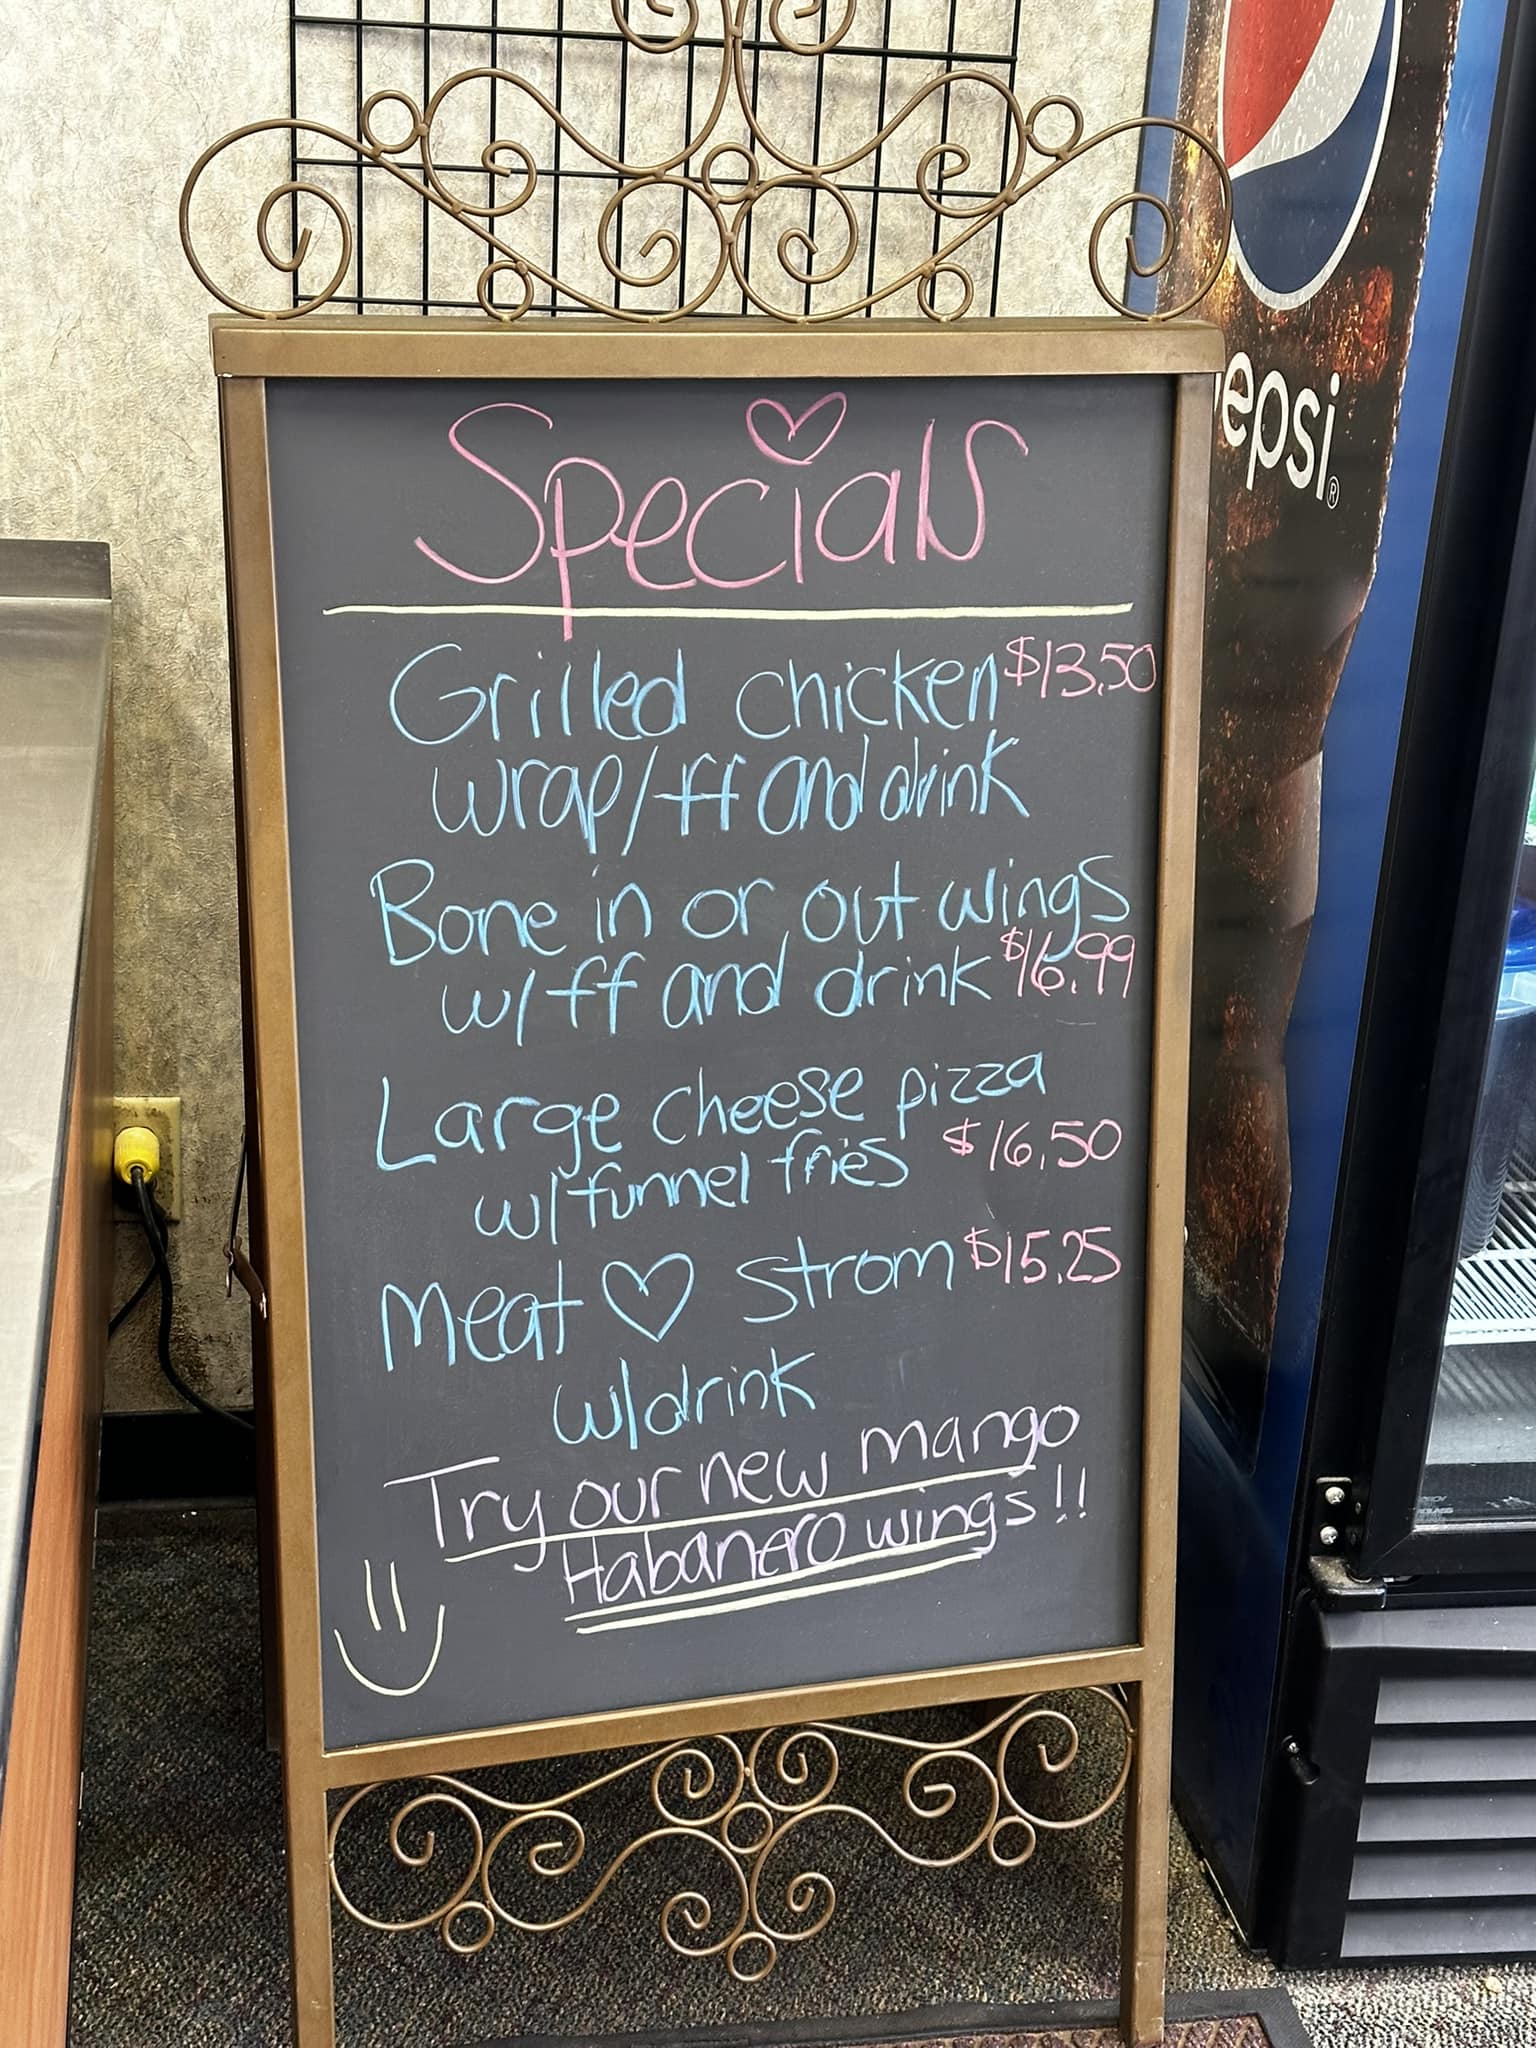 Specials
Grilled chicken $13.50
wrap/ff and drink
Bone in or out wings
w/ff and drink $16.99
Large cheese pizza
w/funnel fries $16.50
Meat ♡ Strom $15.25
w/drink
Try our new mango
Habanero wings!!
epsi®